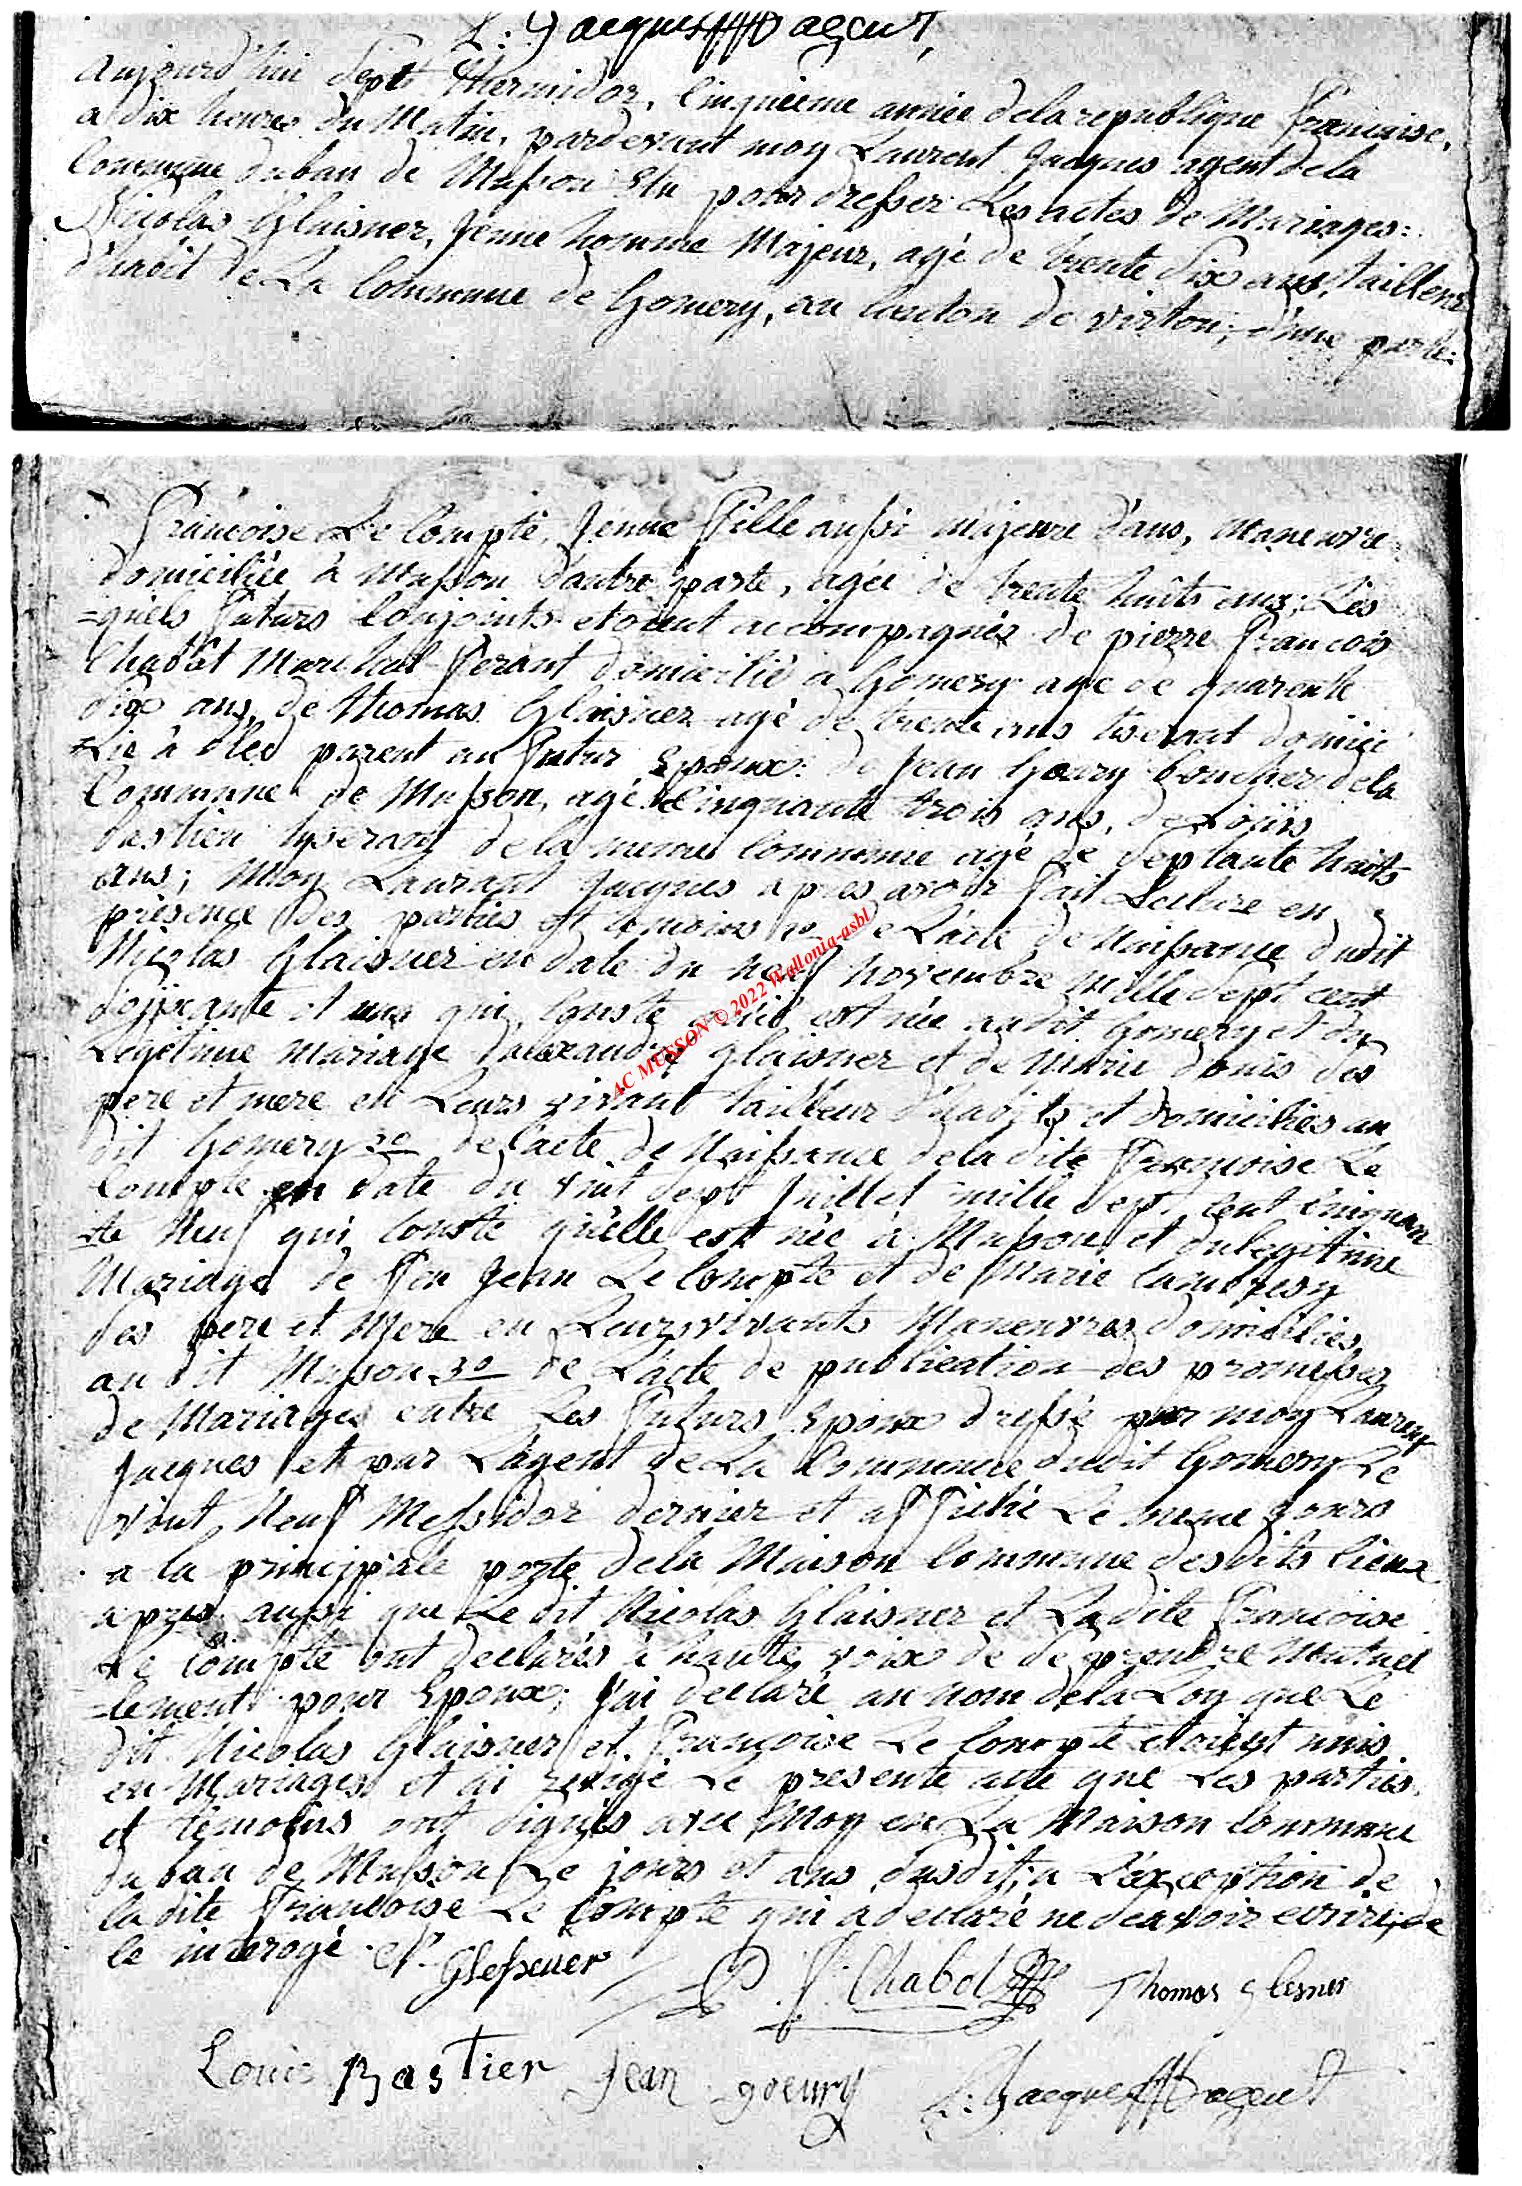 L: Jacques agent
aujourd'hui sept thermidor, cinquieme année dela republique francaise,
a dix heures du Matin, pardevant moy Laurent Jacques agent dela
Commune duban de Musson Elu pour dresser Les actes de Mariages:
Nicolas Glaisner, Jenne homme Majeur, agé de trente six ans, tailleur
d'habit de La Commune de Gomery, au Canton de virton; d'une parte:
Francoise Le Compte, Jenne fille aussi majeure d'ans, Maneuvre
domiciliée à Musson d'autre parte, agée de trente huits ans; Les
=quels futurs Conjoints etoient accompagnés de pierre francois
Chabôt Marichal ferant domicilié a Gomery agé de quarente
dix ans, de thomas Glaisner agé de trente ans tiserant domici
=Lié à parent au futur Epoux: de Jean Goury boucher dela
Commune de Musson, agé de Cinquante trois ans, de Loüis
bastien tyserant dela meme Commune agé de septante huits
ans; Moy Laurant Jacques apres avoir fait Lecture en
presence des parties et temoins 1o de L'acte de Naissance dudit
Nicolas Glaisner en date du neuf novembre mille sept cent
soixante et une qui Conste qu'il est née audit Gomery et du
Legetime mariage d'alexandre Glaisner et de Marie des
pere et mere en Leurs vivant tailleur d'habits et domiciliés au
dit Gomery 2o de l'acte de Naissance dela dite Françoise Le
Compte en date du vint sept Juillet mille sept Cent Cinquan
=te Neuf qui Conste qu'elle est née à Musson et du legitime
Mariage de feu Jean Le Compte et de Marie
des pere et Mere en Leurs vivants Maneuvres domiciliés
au dit Musson 3o de L'acte de publication des promesses
de Mariages entre Les futurs Epoux dressé par moy Laurent
Jacques et par L'agent de La Commune dudit Gomery Le
vint Neuf Messidor dernier et affiché Le meme jours
a la principale porte dela Maison Commune desdits Lieux
apres aussi que Le dit Nicolas Glaisner et La dite Francoise
Le Compte ont declarés à haute voix de se prendre Mutuel
=lement pour Epoux; J'ai declaré au nom dela Loy que Le
dit Nicolas Glaisner et Françoise Le Compte etoient unis
en Mariages et ai redigé Le presente acte que Les parties
et temoins ont signés avec Moy en La Maison Commune
du ban de Musson Le jours et ans susdit; a L'exception de
la dite Francoise Le Compte qui a declaré ne scavoir ecrire, de
le interogé. N. Glessener P. f. Chabot Thomas Glesner
Louis Bastien Jean goeury L: Jacques agent
AC MUSSON © 2022 Wallonia-asbl